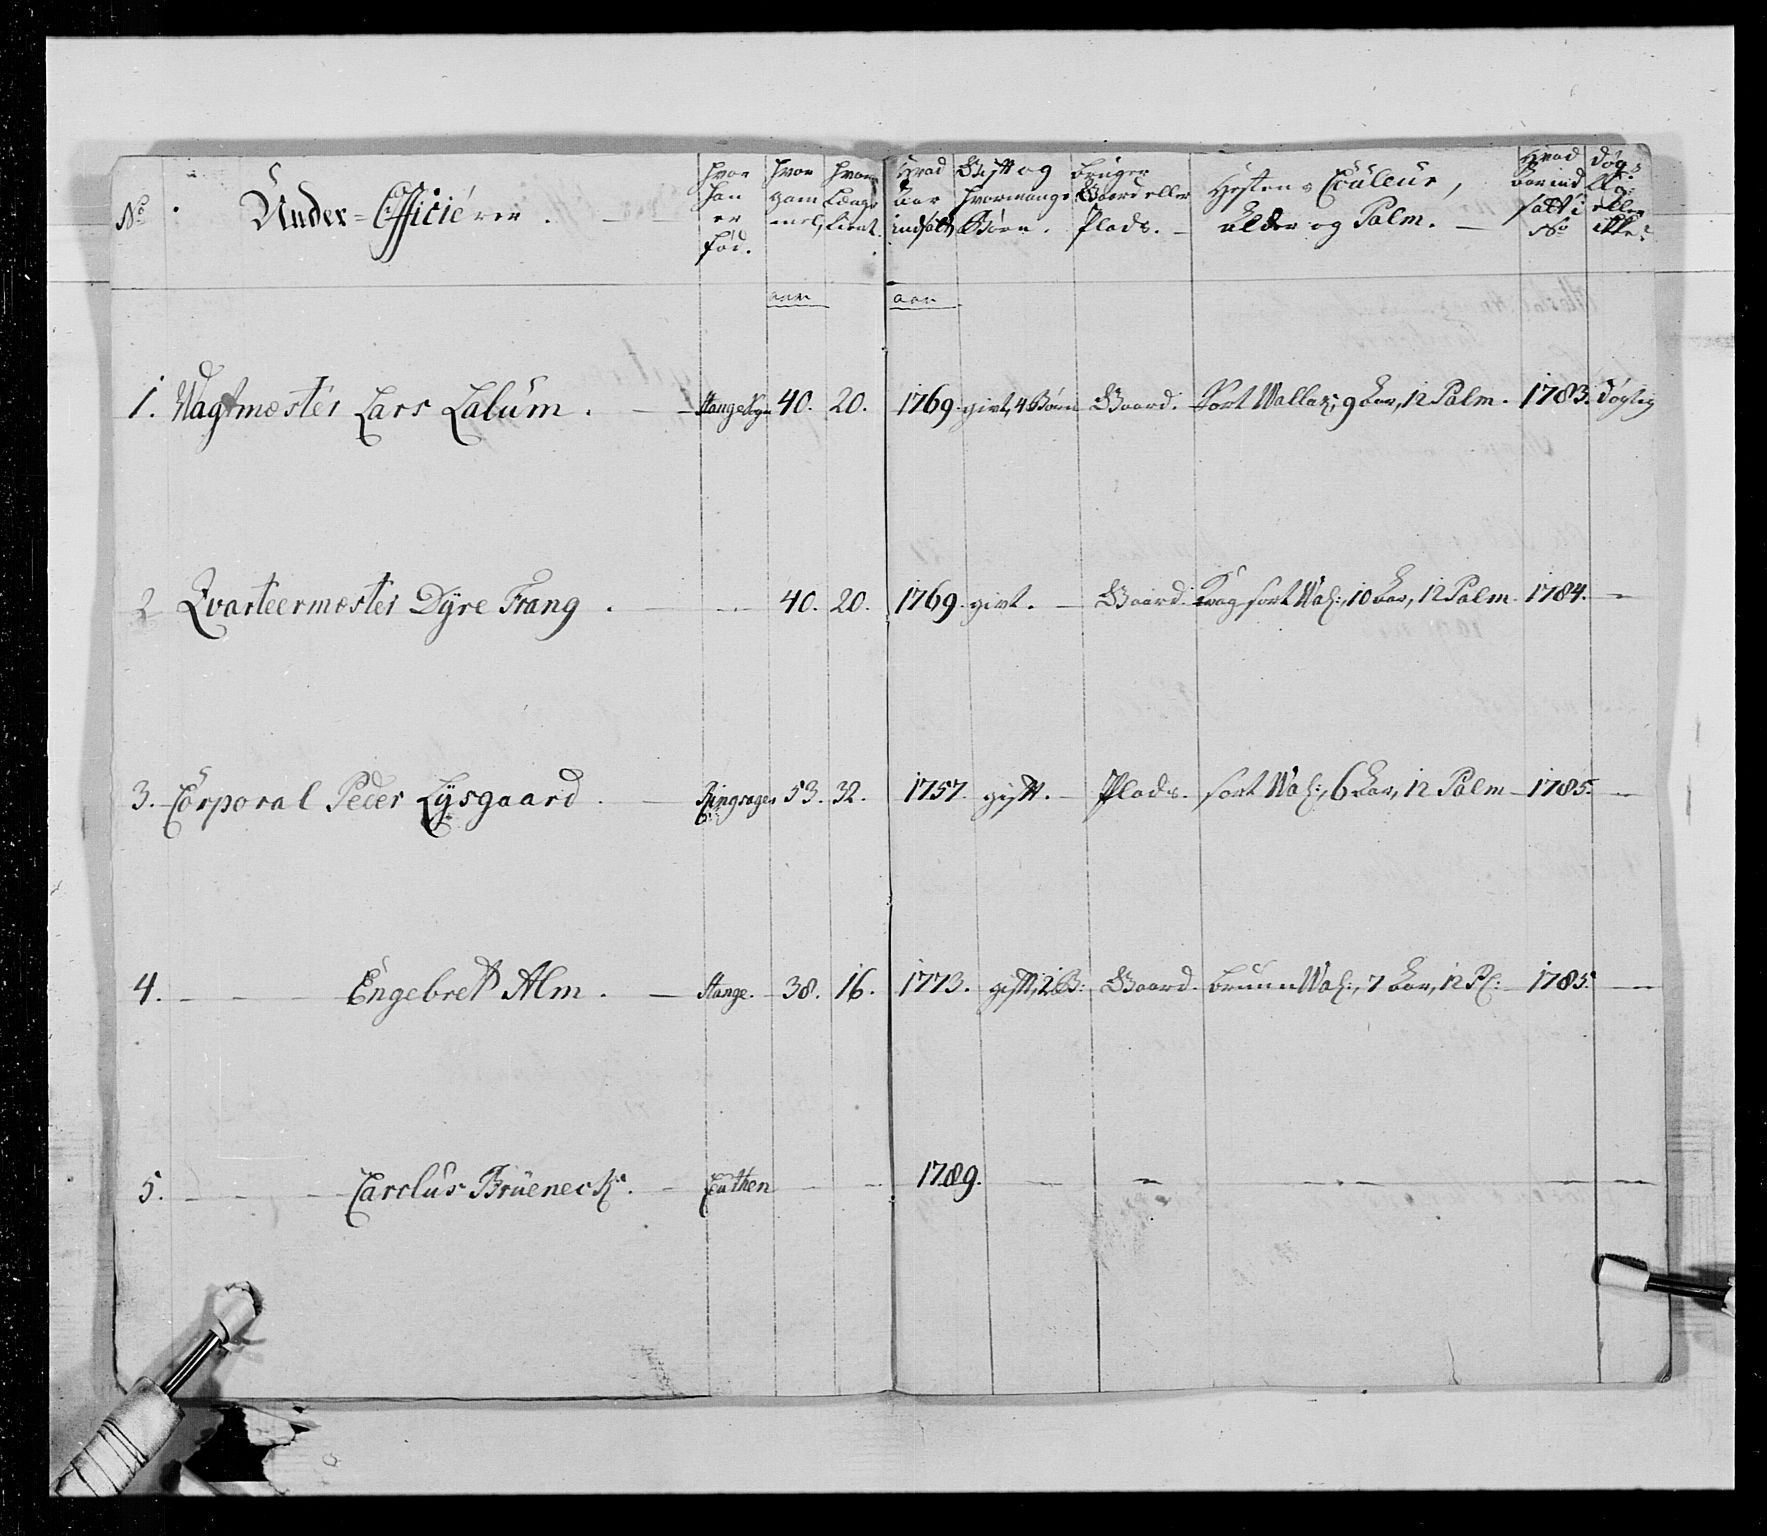 No. Under-Officiérer. hvor han er fød. hvor gammel, hvor Længe tient. Hvad Aar indsatt, Gift og hvormange Børn. bruger Gaard eller Plads. Hestens Couleur, alder og Palm. Hvad Aar ind satt i No døgtig eller ikke?
aar aar
1. Wagtmester Lars Lalúm. Stange Sogn 40. 20. 1769. givt, 4 Børn Gaard. Sort Wallak, 9 Aar, 12 Palm. 1783. døgtig
2 Qvarteermester Dÿre Frang. 40. 20. 1769. givt. Gaard. sort Wal:, 10 Aar, 12 Palm 1784.
3. Corporal Peder Lysgaard. Ringsager 53. 32. 1757. gift. Plads. sort Wal:, 6 Aar, 12 Palm 1785.
4. Engebret Alm. Stange. 38. 16. 1773. gift, 2 B: Gaard. bruun Wal:, 7 Aar, 12 Pl: 1785.
5. Carolús Brúeneck. 1789.